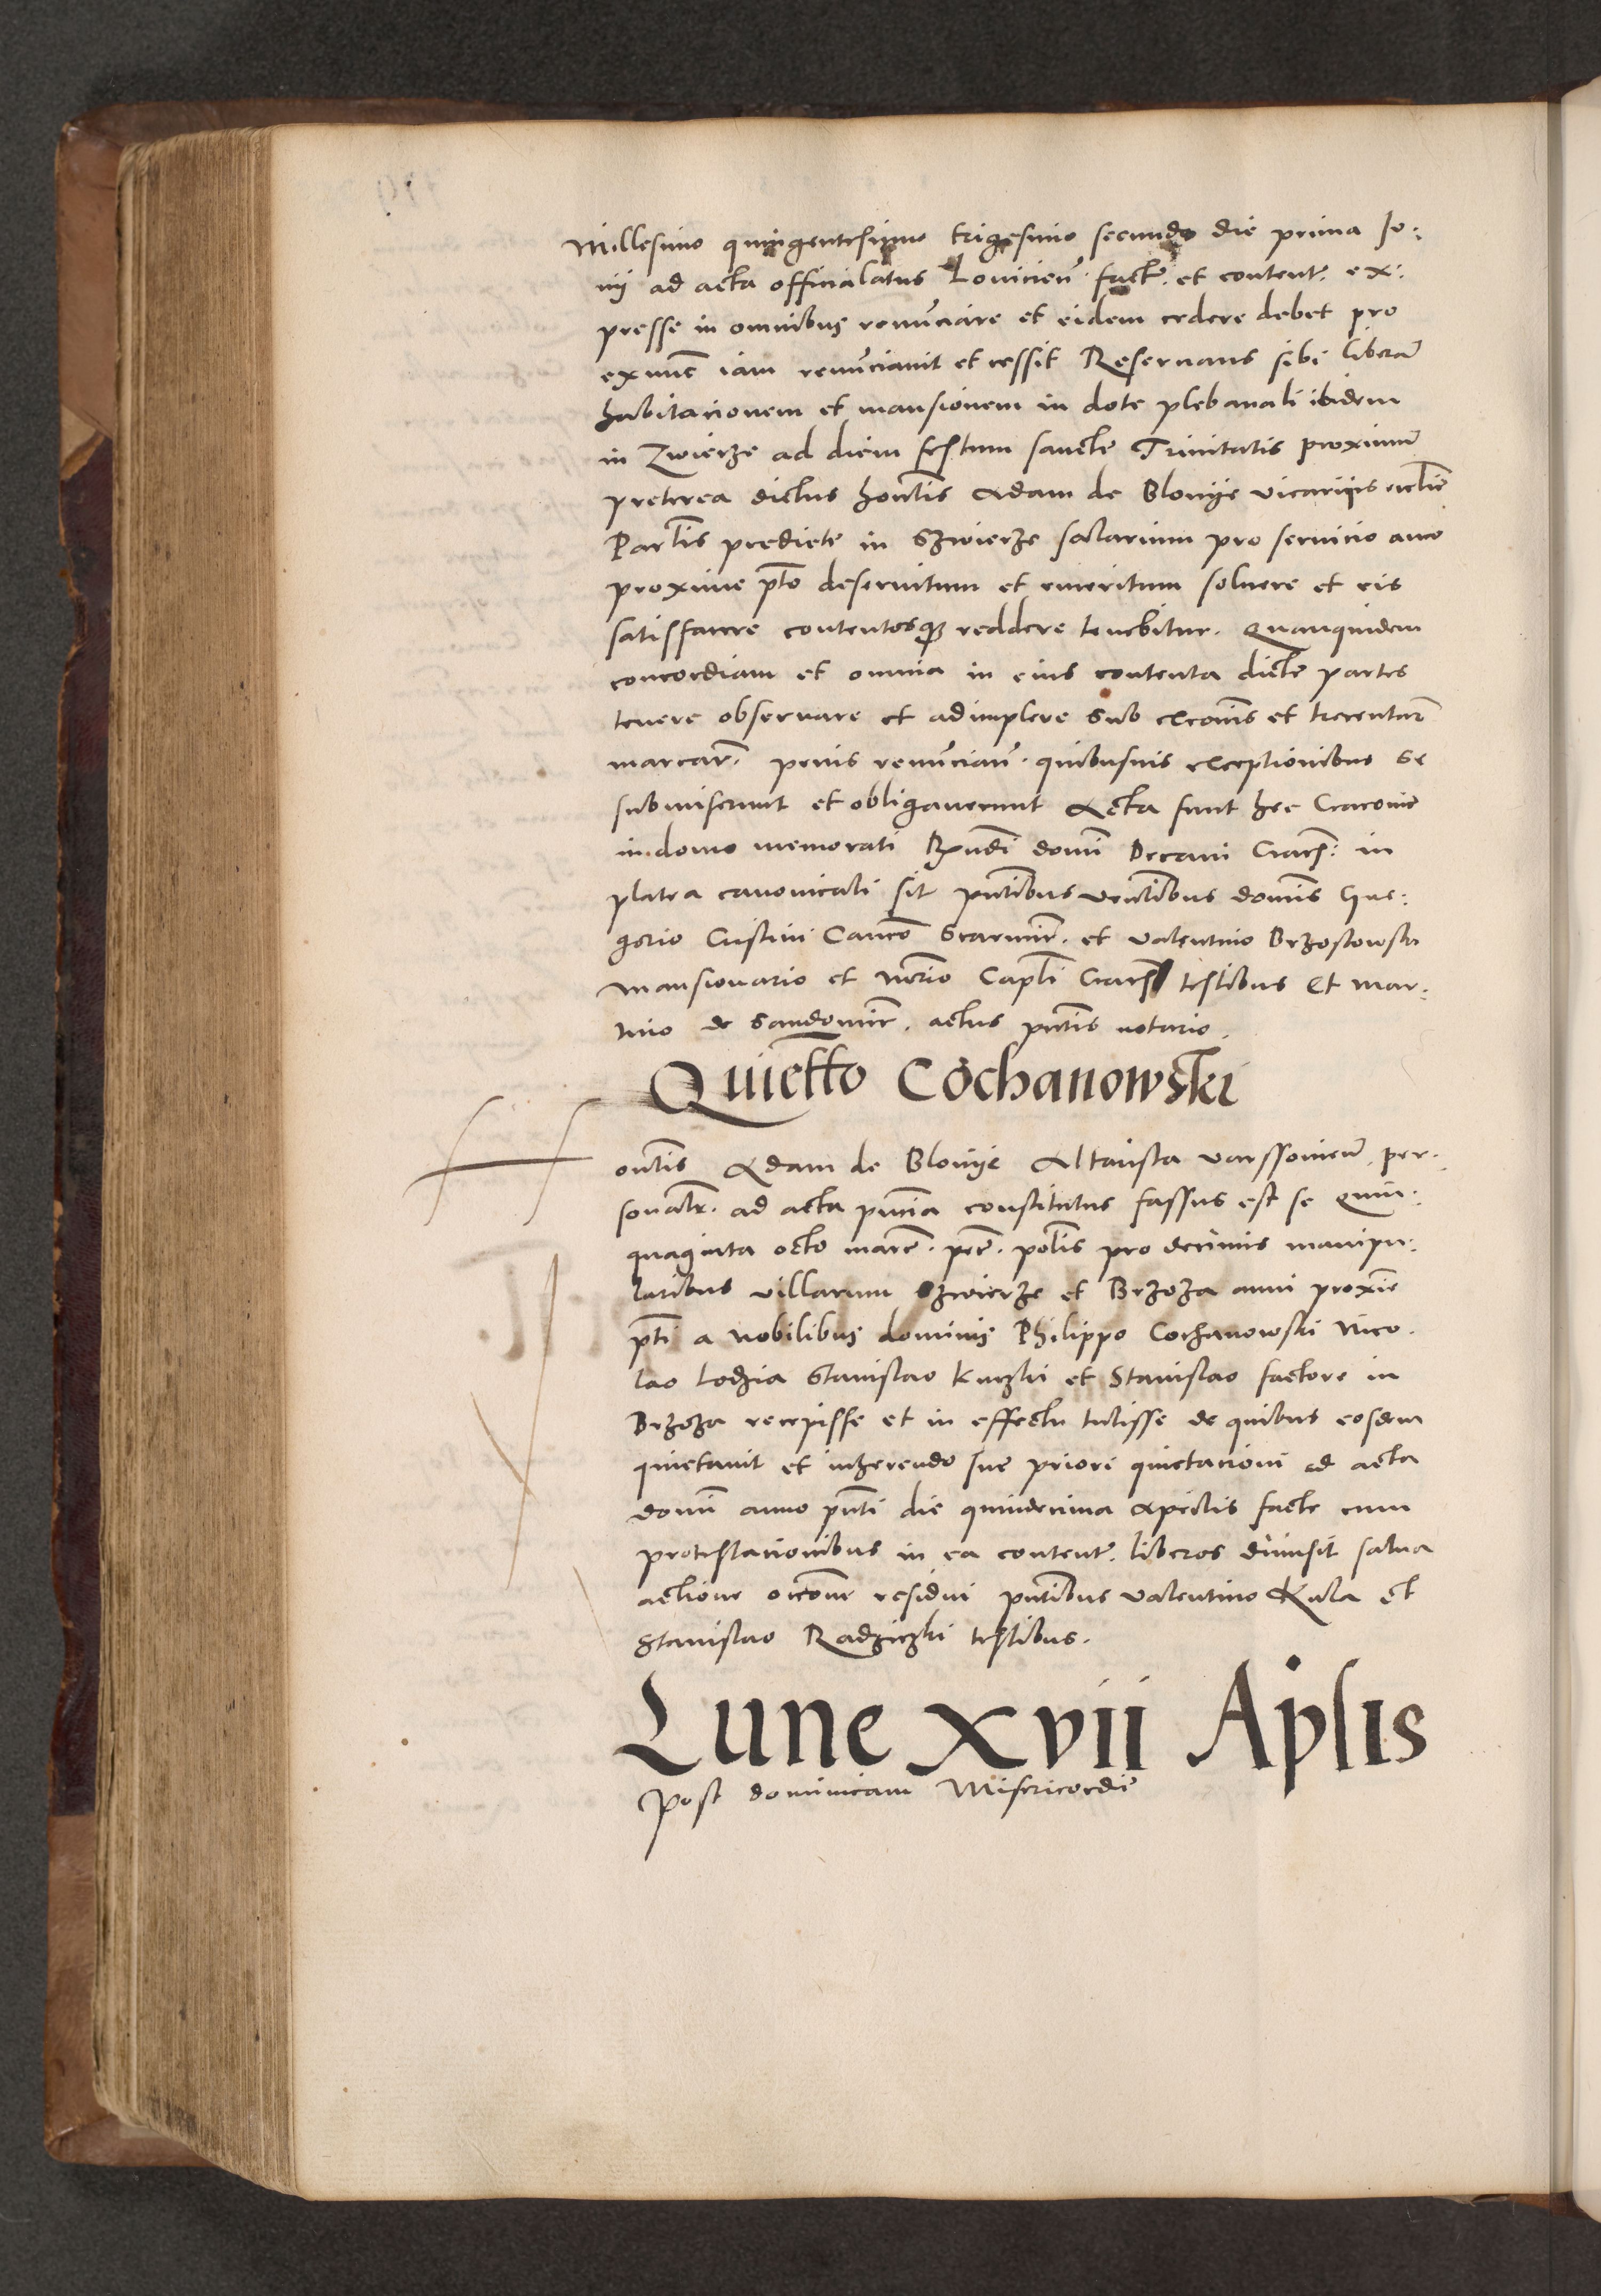 Millesimo quingentesimo trigesimo secundo die prima Ju:
nii ad acta officialatus Lovicien̄. fact. et content. ex:
presse in omnibus renūciare et eidem cedere debet pro
exnūc iam renūciavit et cessit Reservans sibi liberā
habitacionem et mansionem in dote plebanali ibidem
in Zwierze ad diem festum sancte Trinitatis proximū
preterea dictus honēlis Adam de Blonije vicariis ecclie
Parlis predicte in Szwierze salarium pro servicio anno
proxime pto deservitum et emeritum solvere et eis
satisfacere contentosq; reddere tenebitur. Quamquidem
concordiam et omnia in eius contenta dicte partes
tenere observare et adimplere sub excōis et trecentar̄
marcar̄. penis renūcian̄. quibusvis exceptionibus se
submiserunt et obligaverunt Acta sunt hec Cracovie
in domo memorati Rx̄ndi domī Decani Crac̄n̄. in
platea canonicali sit pn̄tibus venēlibus domīs Gre:
gorio Cristini Canco Scarmir̄. et Valentino Brzostowski
Mansionario et No̅rio Capl̄i Crac̄n̄ testibus Et Mar:
tino de Sandomir̄. actus pn̄tis notario.
Quiet̄to Cochanowski
H onēlis Adam de Blonije Altarista Varssovien̄. per:
sonal̄r. ad acta pn̄cia constitutus fassus est se Quin:
quaginta octo marc̄. pec̄. pol̄lis pro decimis manipu:
laribus villarum Szwierze et Brzoza anni proxīe
pt̄i a nobilibus dominis Philippo Cochanowski Nico:
lao Lodzia Stanislao Kuczki et Stanislao factore in
Brzoza recepisse et in effectu tulisse de quibus eosdem
quietavit et inherendo sue priori quietacioni ad acta
domī anno pn̄ti die quindecima Aprilis facte cum
protestacionibus in ea content. liberos dimisit salva
actione occōne residui pn̄tibus Valentino Kula et
Stanislao Radziczki testibus.
Lune xvii Aplis
Post dominicam Misericordie